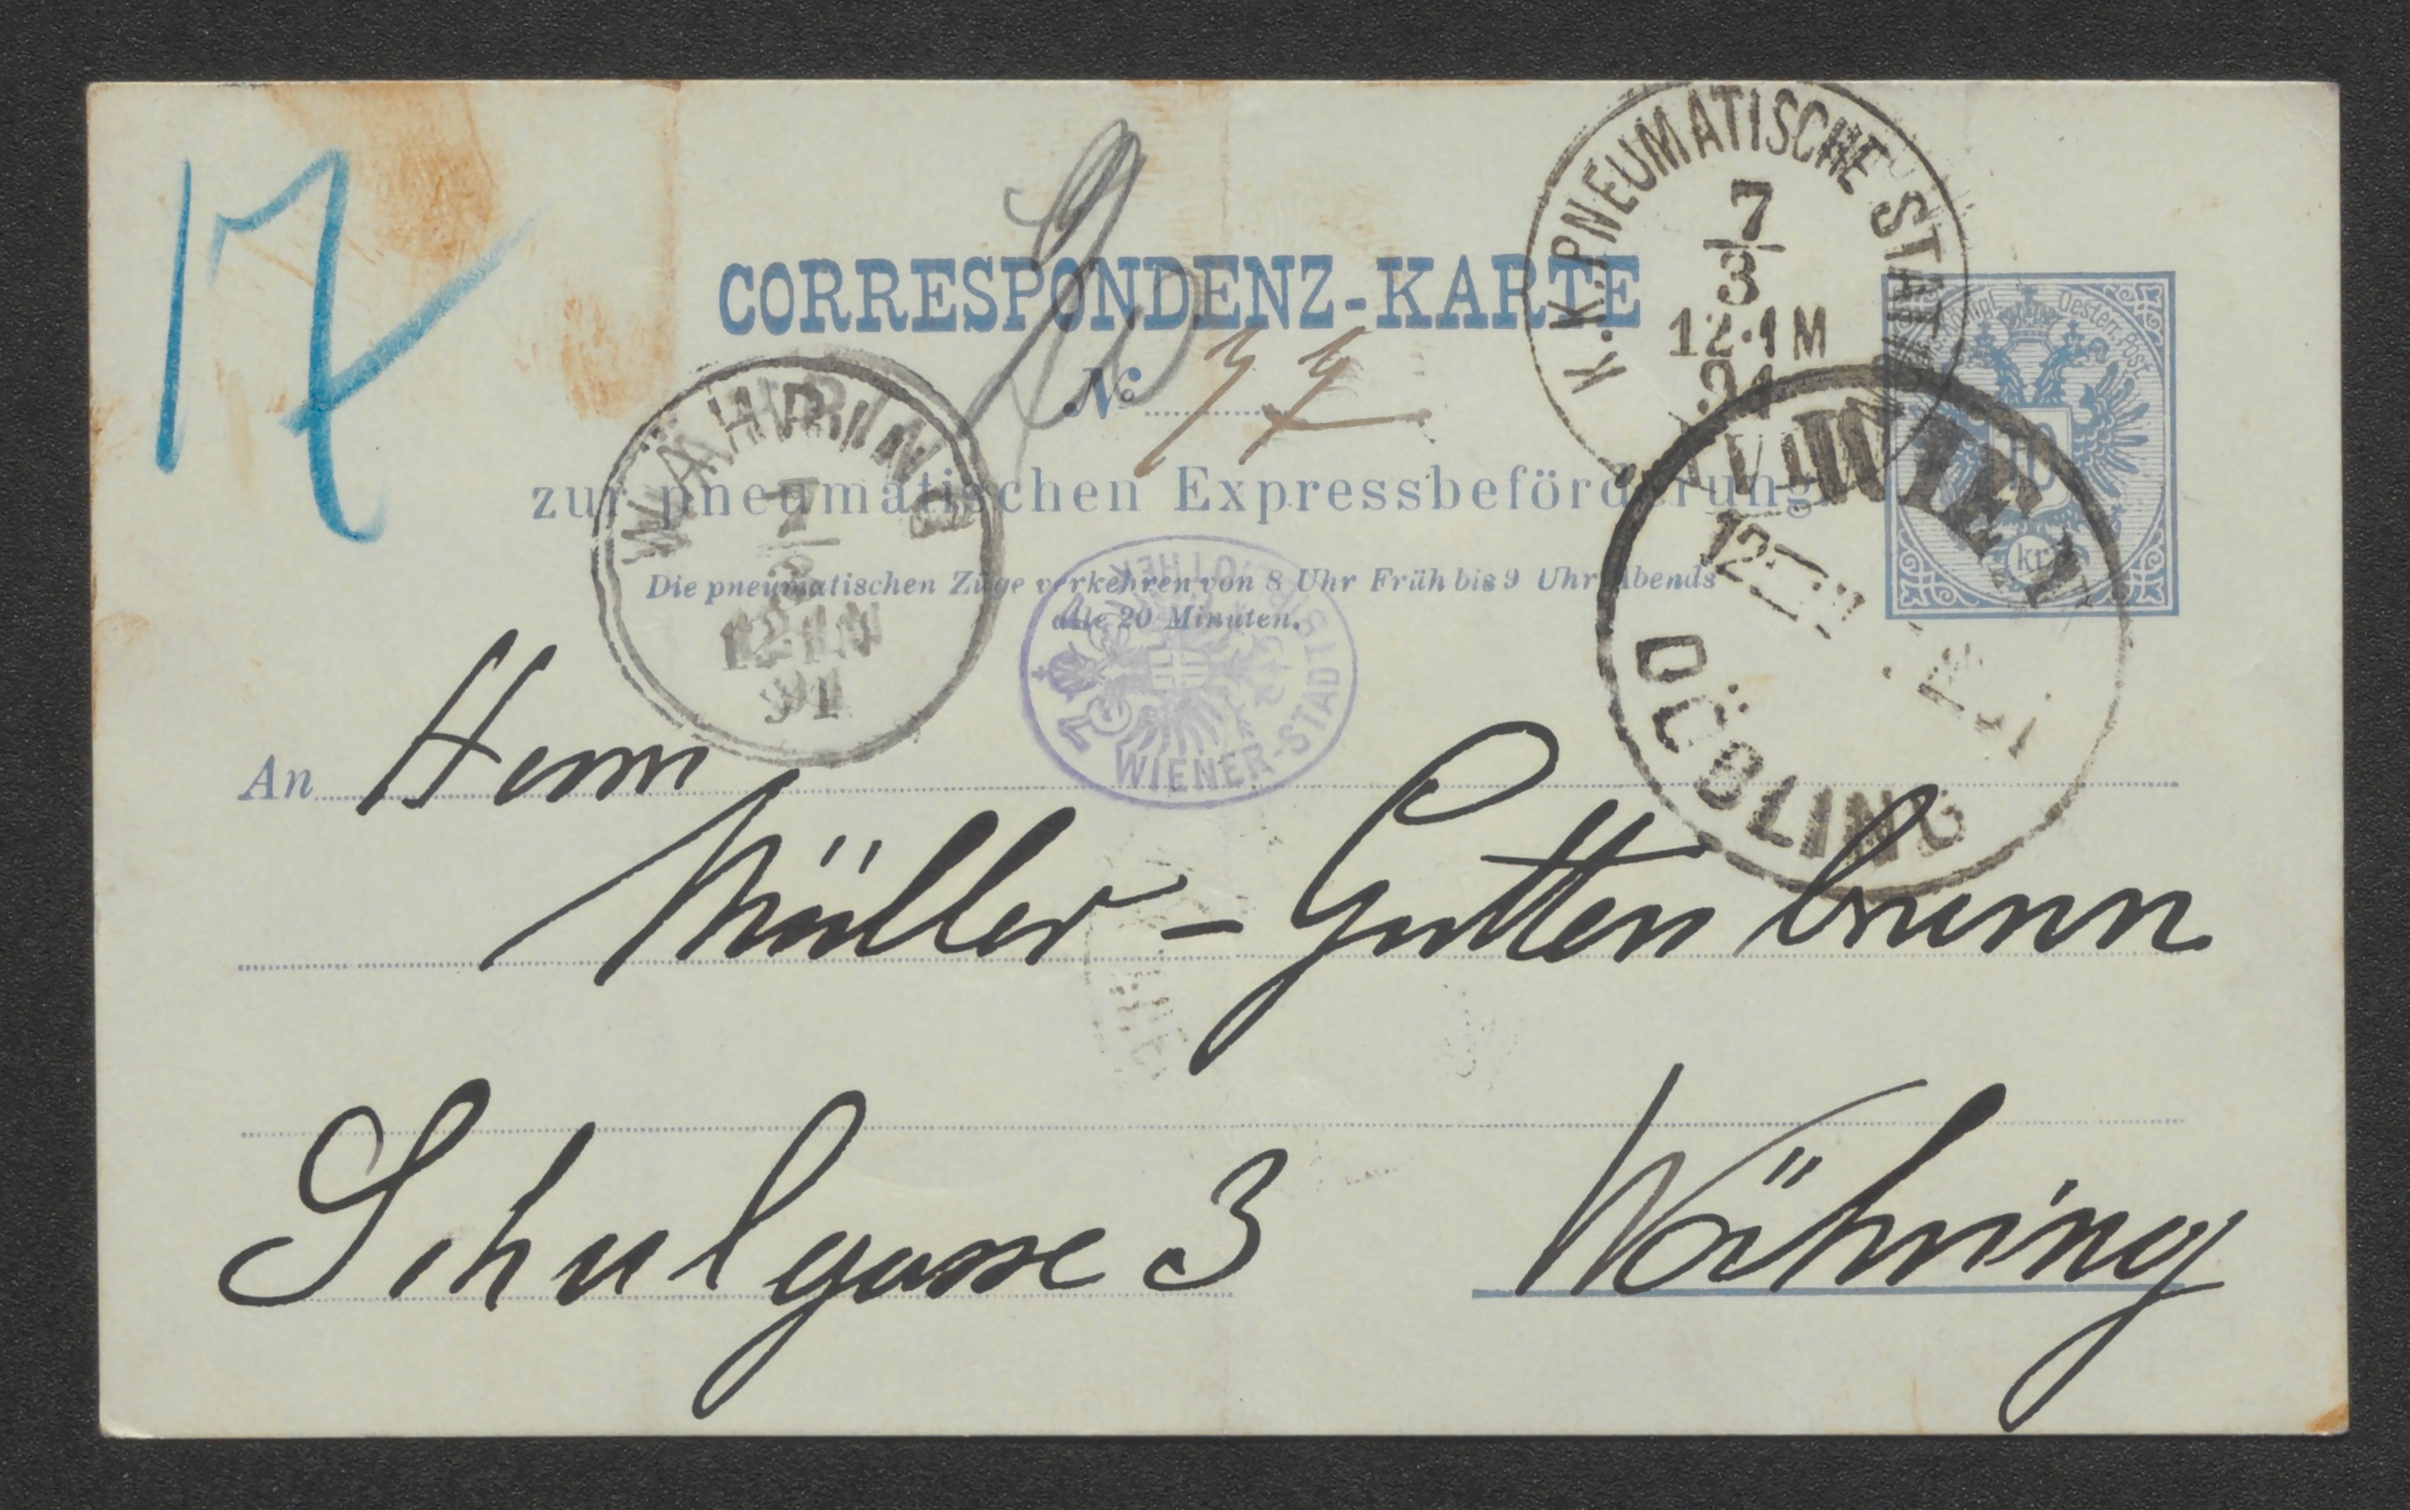 17
CORRESPONDENZ-KARTE
No
zur pneumatischen Expressbeförderung.
Die pneumatischen Züge verkehren von 8 Uhr Früh bis 9 Uhr Abends
alle 20 Minuten.
K.K. PNEUMATISCHE STAT
7
3
12·1M
91
königl. Oesterr. Post
10
kr.
WÄHRING
7
3
12·1N
91
WIEN
12
DÖBLING
WIENER-STADTBIBLIOTHEK
An Herrn
Müller-Guttenbrunn
Schulgasse 3 Währing